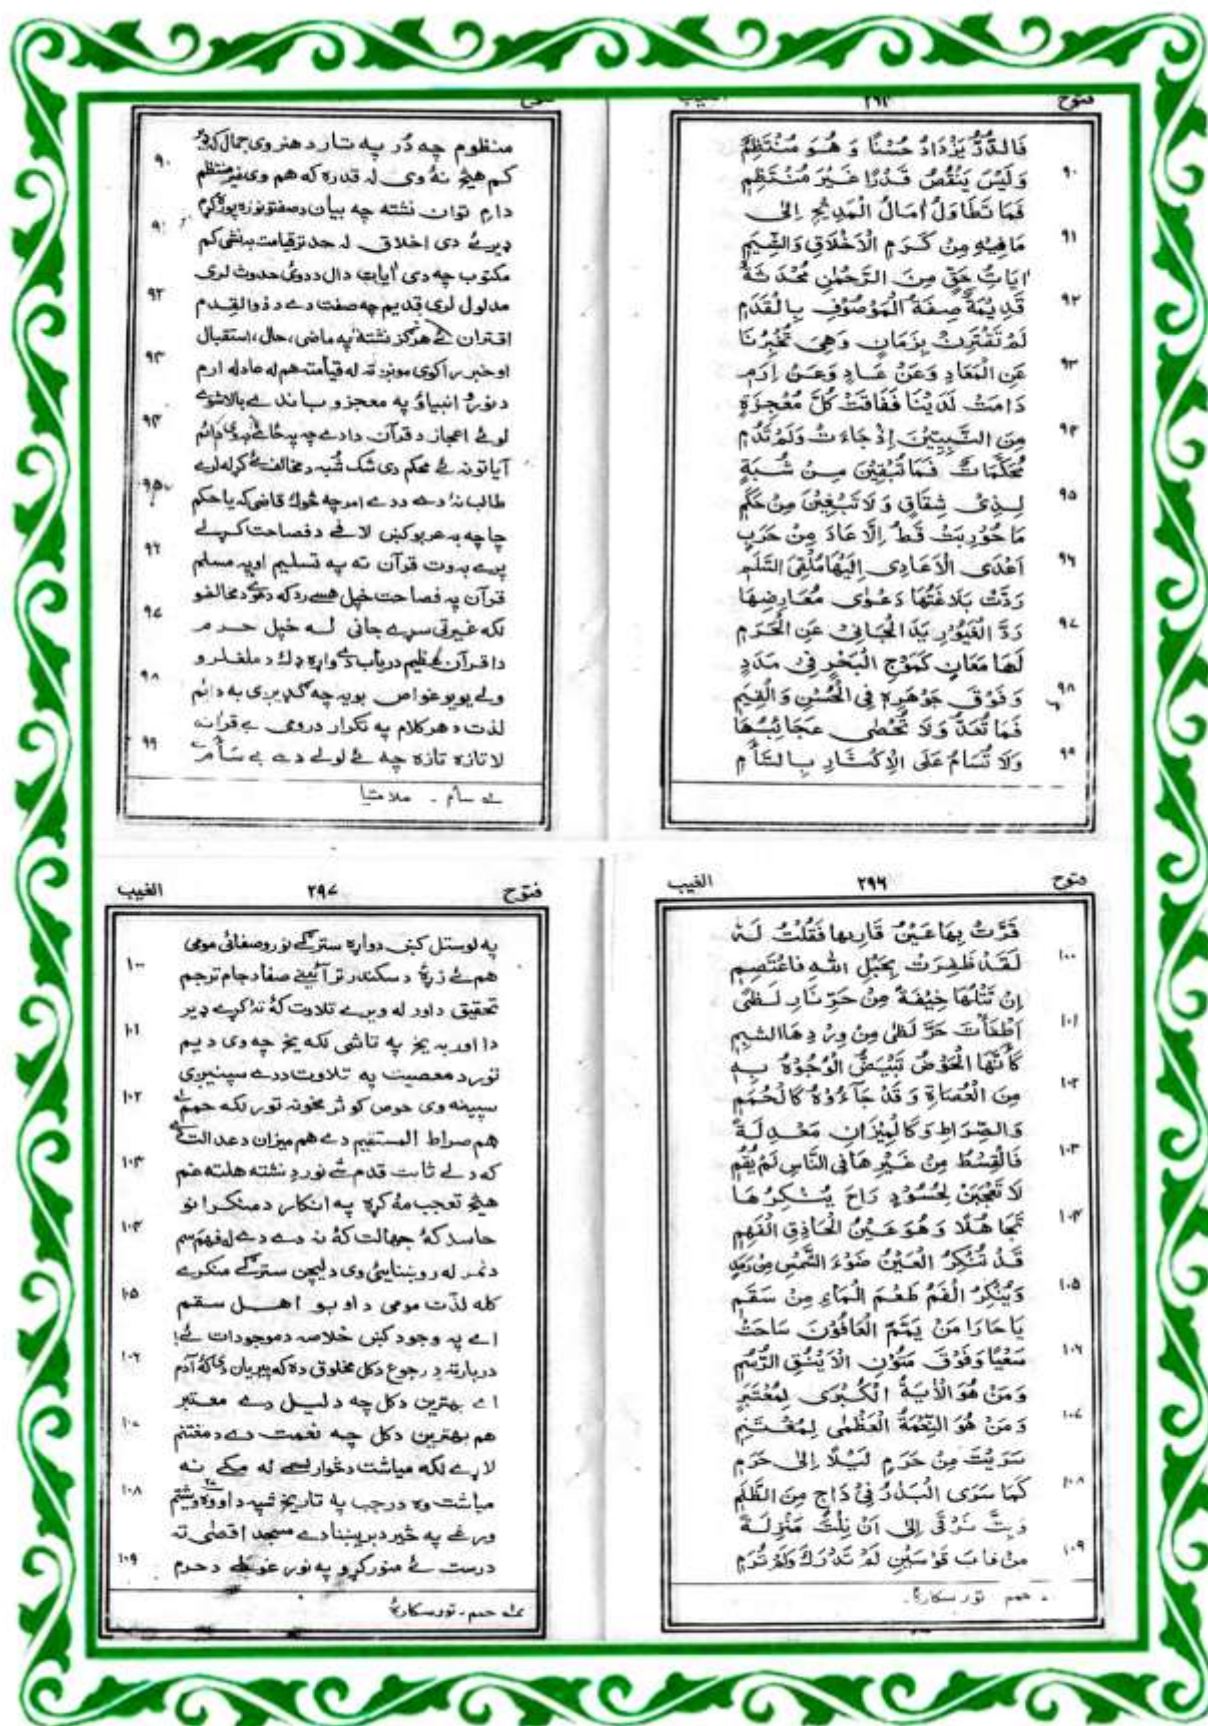 فتوح ٢٩٤ الغيب
فَالدُّرُّ يَزْدَادُ حُسْنًا وَ هُوَ مُنْتَظِمٌ
٩٠ وَلَيْسَ يَنْقُصُ قَدْرًا غَيْرَ مُنْتَظِمٍ
فَمَا تَطَاوَلُ اٰمَالُ الْمَدِيْحِ اِلٰى
٩١ مَا فِيْهِ مِنْ كَرَمِ الْاَخْلَاقِ وَالشِّيَمِ
اٰيَاتُ حَقٍّ مِنَ الرَّحْمٰنِ مُحْدَثَةٌ
٩٢ قَدِيْمَةٌ صِفَةُ الْمَوْصُوْفِ بِالْقِدَمِ
لَمْ تَقْتَرِنْ بِزَمَانٍ وَهِيَ تُخْبِرُنَا
٩٣ عَنِ الْمَعَادِ وَعَنْ عَادٍ وَعَنْ اِرَمِ
دَامَتْ لَدَيْنَا فَفَاقَتْ كُلَّ مُعْجِزَةٍ
٩٤ مِنَ النَّبِيِّيْنَ اِذْ جَاءَتْ وَلَمْ تَدُمِ
مُحَكَّمَاتٌ فَمَا تُبْقِيْنَ مِنْ شُبَهٍ
٩٥ لِذِيْ شِقَاقٍ وَلَا تَبْغِيْنَ مِنْ حَكَمِ
مَا حُوْرِبَتْ قَطُّ اِلَّا عَادَ مِنْ حَرَبٍ
٩٦ اَعْدَى الْاَعَادِى اِلَيْهَا مُلْقِيَ السَّلَمِ
رَدَّتْ بَلَاغَتُهَا دَعْوٰى مُعَارِضِهَا
٩٧ رَدَّ الْغَيُوْرِ يَدَ الْجَانِيْ عَنِ الْحَرَمِ
لَهَا مَعَانٍ كَمَوْجِ الْبَحْرِ فِيْ مَدَدٍ
٩٨ وَ فَوْقَ جَوْهَرِهٖ فِي الْحُسْنِ وَ الْقِيَمِ
فَمَا تُعَدُّ وَلَا تُحْصٰى عَجَائِبُهَا
٩٩ وَلَا تُسَامُ عَلَى الْاِكْثَارِ بِالسَّأَمِ
منظوم چه دُر په تار د هنر وی جمال
٩٠ کم هیڅ نهٔ وی له قدره که هم وی غیر منتظم
دارم توان نشته چه بیان د صفتونو زه پوره کړم
٩١ ډیرے دی اخلاق له حد تر قیامت به نشی کم
مکتوب چه دی اٰیات دال حدوث لری
٩٢ مدلول لری قدیم چه صفت دے د ذوالقِدم
اقتران ئے هرګز نشته په ماضی، حال، استقبال
٩٣ او خبر راکوی مونږ ته له قیامته هم له عاد له ارم
د نورو انبیاؤ په معجزو باندے بالا شوے
٩٤ لوئے اعجاز د قرآن دا دے چه په ځائے دائم
آیاتونه ئے محکم دی شک شُبه د مخالف
٩٥ طالبانهٔ دے د دے امر چه څوك قاضی که یا حکم
چا چه به عربو کښ لافے د فصاحت کړلے
٩٦ پرے به وت قرآن ته په تسلیم او په مسلم
قرآن په فصاحت خپل هسے رد که دعوٰے د مخالفو
٩٧ لکه غیرتی سړے جانی له خپل حرم
دا قرآن عظیم دریاب دے واړه ډك د ملغلرو
٩٨ ولے یو یو غواص بویه چه ګډیږی به دائم
لذت د هر کلام په تکرار درومی بے قرآنه
٩٩ لا تازه تازه چه ئے لولے دے بے سَأم
له سأم ۔ ملامتیا
فتوح ٢٩٦ الغیب
قَرَّتْ بِهَا عَيْنُ قَارِيهَا فَقُلْتُ لَهٗ
١٠٠ لَقَدْ ظَفِرْتَ بِحَبْلِ اللهِ فَاعْتَصِمِ
اِنْ تَتْلُهَا خِيْفَةً مِنْ حَرِّ نَارِ لَظٰى
١٠١ اَطْفَأْتَ حَرَّ لَظٰى مِنْ وِرْدِهَا الشَّبِمِ
كَأَنَّهَا الْحَوْضُ تَبْيَضُّ الْوُجُوْهُ بِهٖ
١٠٢ مِنَ الْعُصَاةِ وَ قَدْ جَآءُوْهُ كَالْحُمَمِ
وَالصِّرَاطِ وَكَالْمِيْزَانِ مَعْدِلَةً
١٠٣ فَالْقِسْطُ مِنْ غَيْرِهَا فِي النَّاسِ لَمْ يَقُمِ
لَا تَعْجَبَنْ لِحَسُوْدٍ رَاحَ يُنْكِرُهَا
١٠٤ تَجَاهُلًا وَ هُوَ عَيْنُ الْحَاذِقِ الْفَهِمِ
قَدْ تُنْكِرُ الْعَيْنُ ضَوْءَ الشَّمْسِ مِنْ رَمَدٍ
١٠٥ وَيُنْكِرُ الْفَمُ طَعْمَ الْمَاءِ مِنْ سَقَمِ
يَا مَنْ يَمَّمَ الْعَافُوْنَ سَاحَتَهٗ
١٠٦ سَعْيًا وَ فَوْقَ مُتُوْنِ الْاَيْنُقِ الرُّسُمِ
وَ مَنْ هُوَ الْاٰيَةُ الْكُبْرٰى لِمُعْتَبِرٍ
١٠٧ وَ مَنْ هُوَ النِّعْمَةُ الْعُظْمٰى لِمُغْتَنِمِ
سَرَيْتَ مِنْ حَرَمٍ لَيْلًا اِلٰى حَرَمٍ
١٠٨ كَمَا سَرَى الْبَدْرُ فِيْ دَاجٍ مِنَ الظُّلَمِ
وَبِتَّ تَرْقٰى اِلٰى اَنْ نِلْتَ مَنْزِلَةً
١٠٩ مِنْ قَابَ قَوْسَيْنِ لَمْ تُدْرَكْ وَلَمْ تُرَمِ
حمم تور سکارهٔ
فتوح ٢٩٧ الغیب
په لوستل کښ دواړه سترګے نور و صفائی مومی
١٠٠ هم ئے زړهٔ د سکندر تر آئینے صفا د جام تر جم
تحقیق د اور له ویرے تلاوت کهٔ نهٔ کړے ډیر
١٠١ دا اور به یخ په تا شی لکه یخ چه وی دیم
تور د معصیت په تلاوت د دے سپینیږی
١٠٢ سپینه وی حوض کوثر مخونه تور لکه حمم
هم صراط المستقیم دے هم میزان د عدالت
١٠٣ که د لے ثابت قدم شے نور د نشته هلته غم
هیڅ تعجب مهٔ کړه په انکار د منکرانو
١٠٤ حاسد کهٔ جهالت کهٔ نه دے دے له فهم سم
د نمر له روښنایئ وی د لیچن سترګے منکرے
١٠٥ کله لذّت مومی د اوبو اهل سقم
اے په وجود کښ خلاصه د موجودات ئے
١٠٦ دربار ته د رجوع د کل مخلوق ده که پیریان دی کهٔ آدم
اے بهترین د کل چه دلیل دے معتبر
١٠٧ هم بهترین د کل چه نعمت دے د مغتنم
لاړے لکه میاشت د خوار لسمے له مکے نه
١٠٨ میاشت وه د رجب په تاریخ شپه د اووه ویشتم
ورغے په خیر د بریښنا دے مسجد اقصٰی ته
١٠٩ درست ئے منور کړو په نور د حرم
له حمم ۔ تور سکارهٔ